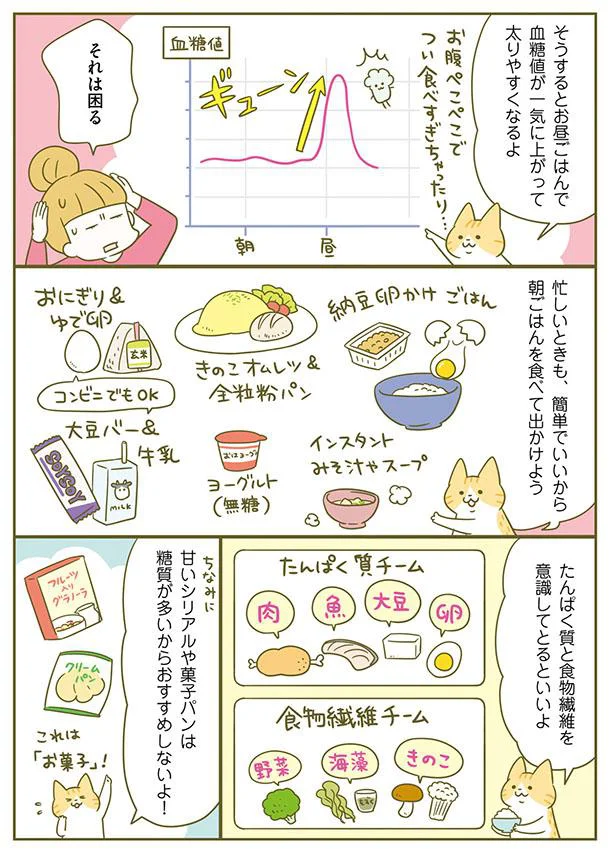 そうするとお昼ごはんで
血糖値が一気に上がって
太りやすくなるよ
お腹ぺこぺこで
つい食べすぎちゃったり…
血糖値
ギューン
朝
昼
それは困る
忙しいときも、簡単でいいから
朝ごはんを食べて出かけよう
おにぎり&
ゆで卵
玄米
コンビニでもOK
きのこオムレツ&
全粒粉パン
納豆卵かけごはん
大豆バー&
牛乳
SOYSOY
MILK
ヨーグルト
(無糖)
インスタント
みそ汁やスープ
たんぱく質と食物繊維を
意識してとるといいよ
たんぱく質チーム
肉
魚
大豆
卵
食物繊維チーム
野菜
海藻
もずく
きのこ
ちなみに
甘いシリアルや菓子パンは
糖質が多いからおすすめしないよ!
フルーツ
入り
グラノーラ
クリーム
パン
これは
「お菓子」!